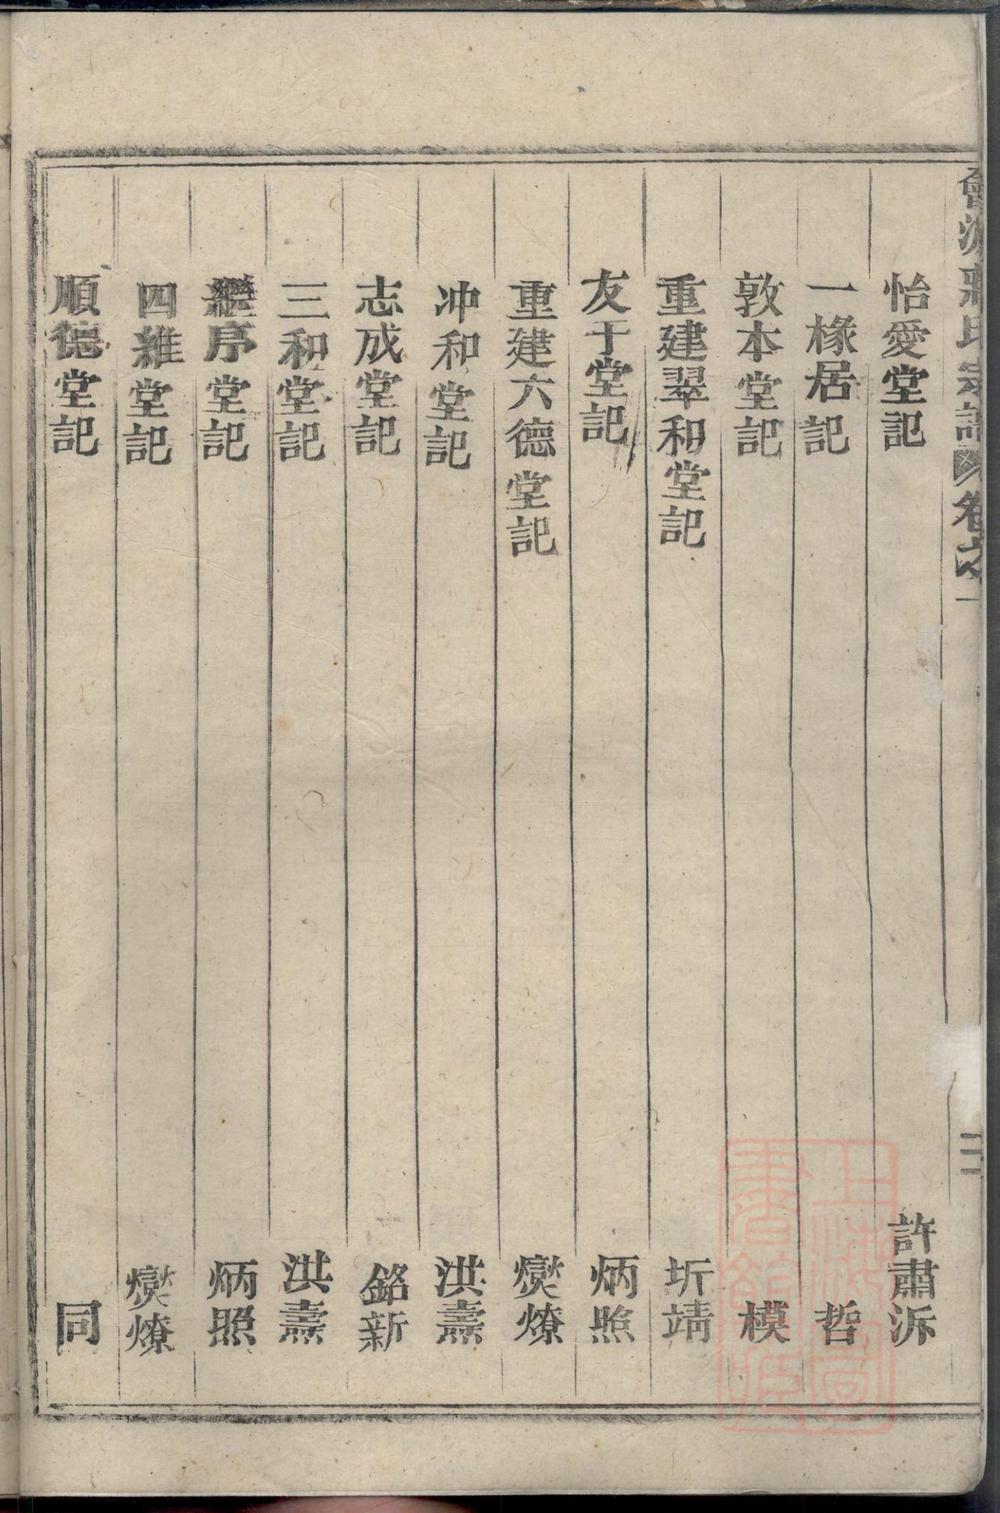 氏宗譜 卷之一
二
怡愛堂記 許肅泝
一椽居記 哲
敦本堂記 模
重建翠和堂記 圻靖
友于堂記 炳照
重建六德堂記 爕燎
冲和堂記 洪燾
志成堂記 銘新
三和堂記 洪燾
繼序堂記 炳照
四維堂記 爕燎
順德堂記 同